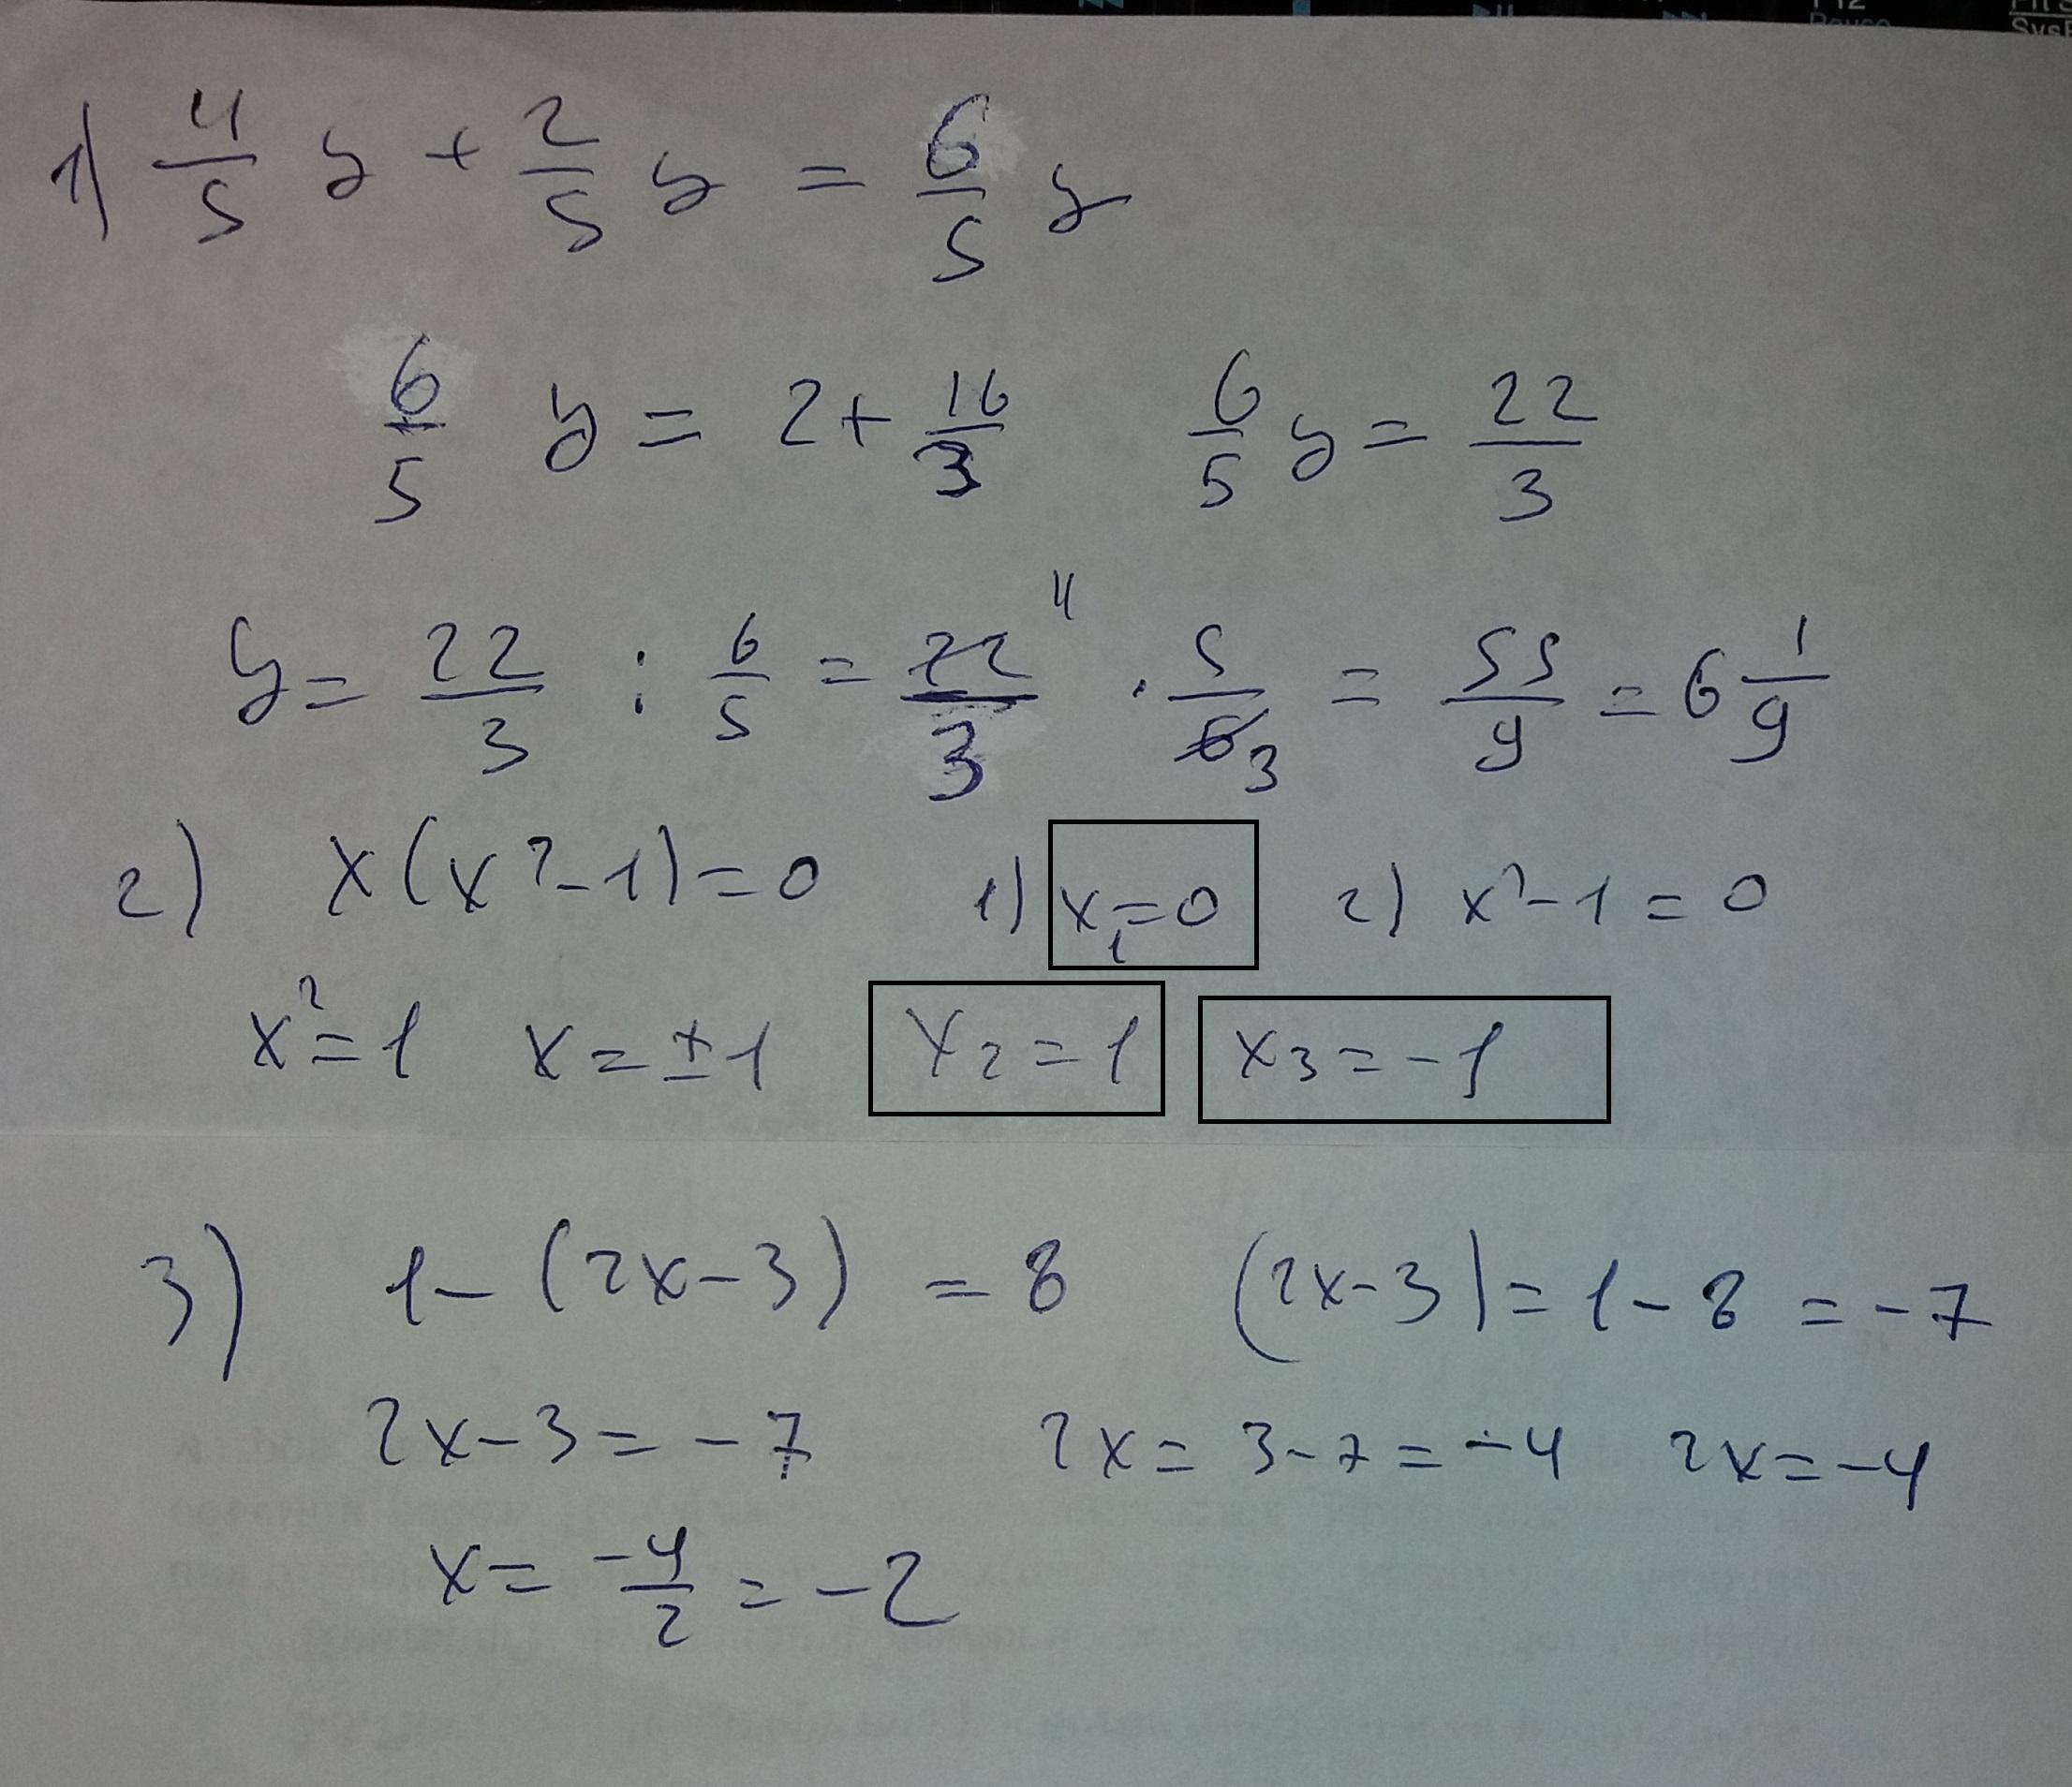 1) 4/5 y + 2/5 y = 6/5 y
6/5 y = 2 + 16/3 6/5 y = 22/3
y = 22/3 : 6/5 = 22/3 11 · 5/6 3 = 55/9 = 6 1/9
2) x(x²-1)=0 1) x₁=0 2) x²-1=0
x²=1 x=±1 x₂=1 x₃=-1
3) 1-(2x-3)=8 (2x-3)=1-8=-7
2x-3=-7 2x=3-7=-4 2x=-4
x=-4/2=-2